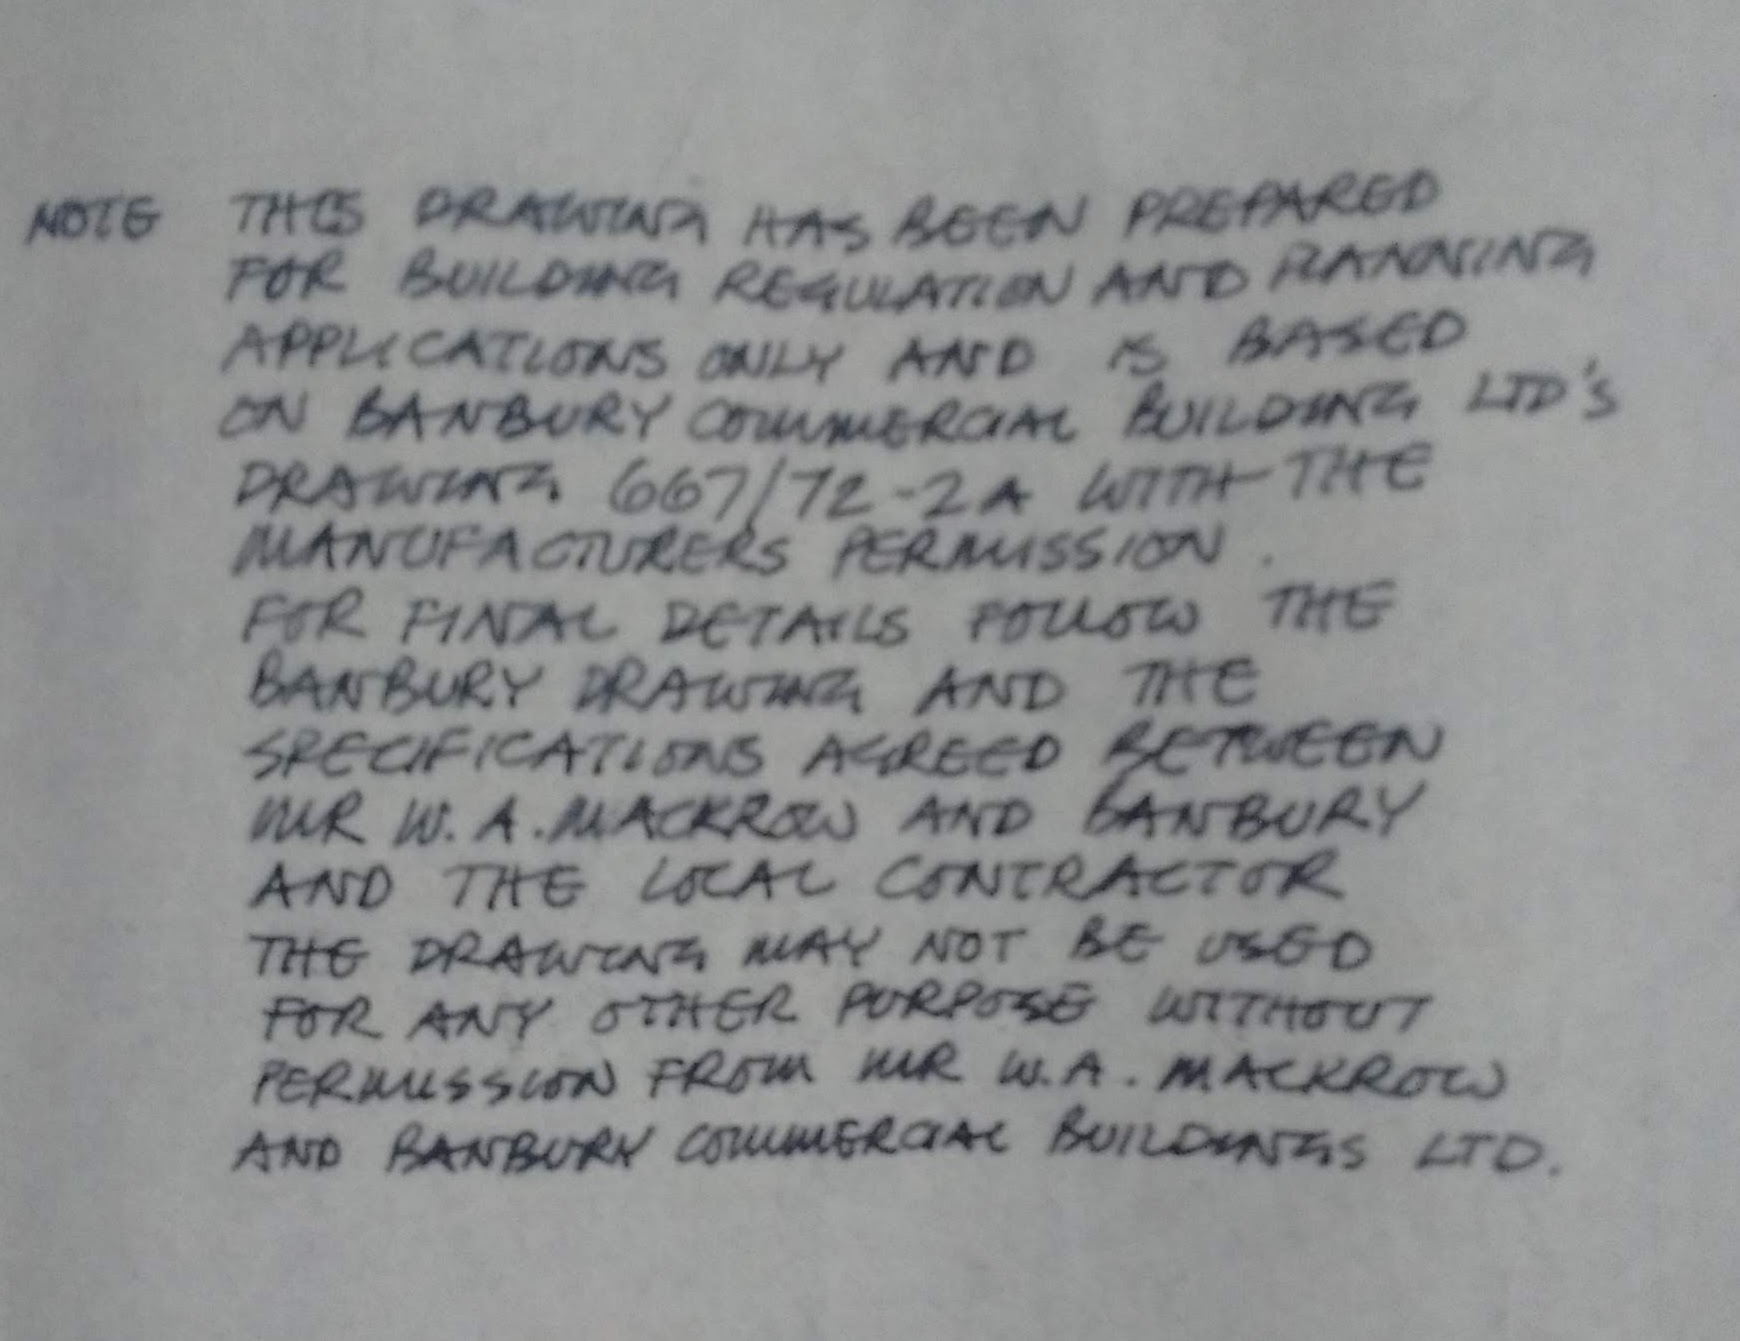 NOTE THIS DRAWING HAS BEEN PREPARED
FOR BUILDING REGULATION AND PLANNING
APPLICATIONS ONLY AND IS BASED
ON BANBURY COMMERCIAL BUILDING LTD'S
DRAWING 667/72-2A WITH THE
MANUFACTURERS PERMISSION.
FOR FINAL DETAILS FOLLOW THE
BANBURY DRAWING AND THE
SPECIFICATIONS AGREED BETWEEN
MR W. A. MACKROW AND BANBURY
AND THE LOCAL CONTRACTOR
THE DRAWING MAY NOT BE USED
FOR ANY OTHER PURPOSE WITHOUT
PERMISSION FROM MR W.A. MACKROW
AND BANBURY COMMERCIAL BUILDINGS LTD.